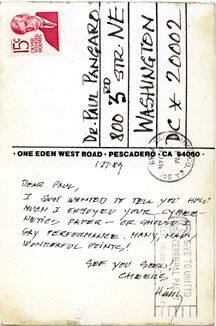 15¢
Dr. Paul Pangaro
800 3RD STR. NE
Washington
DC * 20002
• ONE EDEN WEST ROAD • PESCADERO • CA 94060 •
Dear Paul,
I just wanted to tell you how
much I enjoyed your cyber-
netics paper — or should I
say performance. Many, many
wonderful points!
See you soon.
Cheers,
GIVE TO UNITED